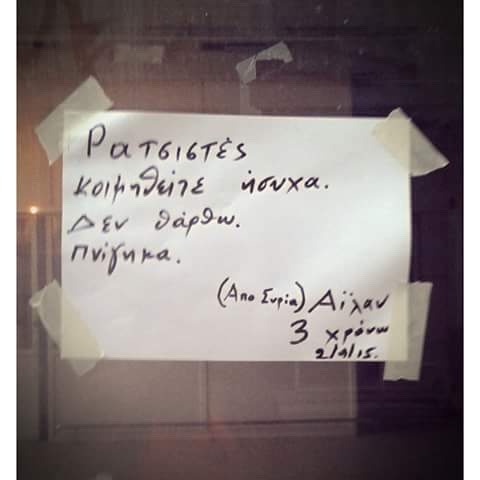 Ρατσιστές
κοιμηθείτε ήσυχα.
Δεν θάρθω.
Πνίγηκα.
(Απο Συρία) Αϊλαν
3 χρόνω
2/9/15.